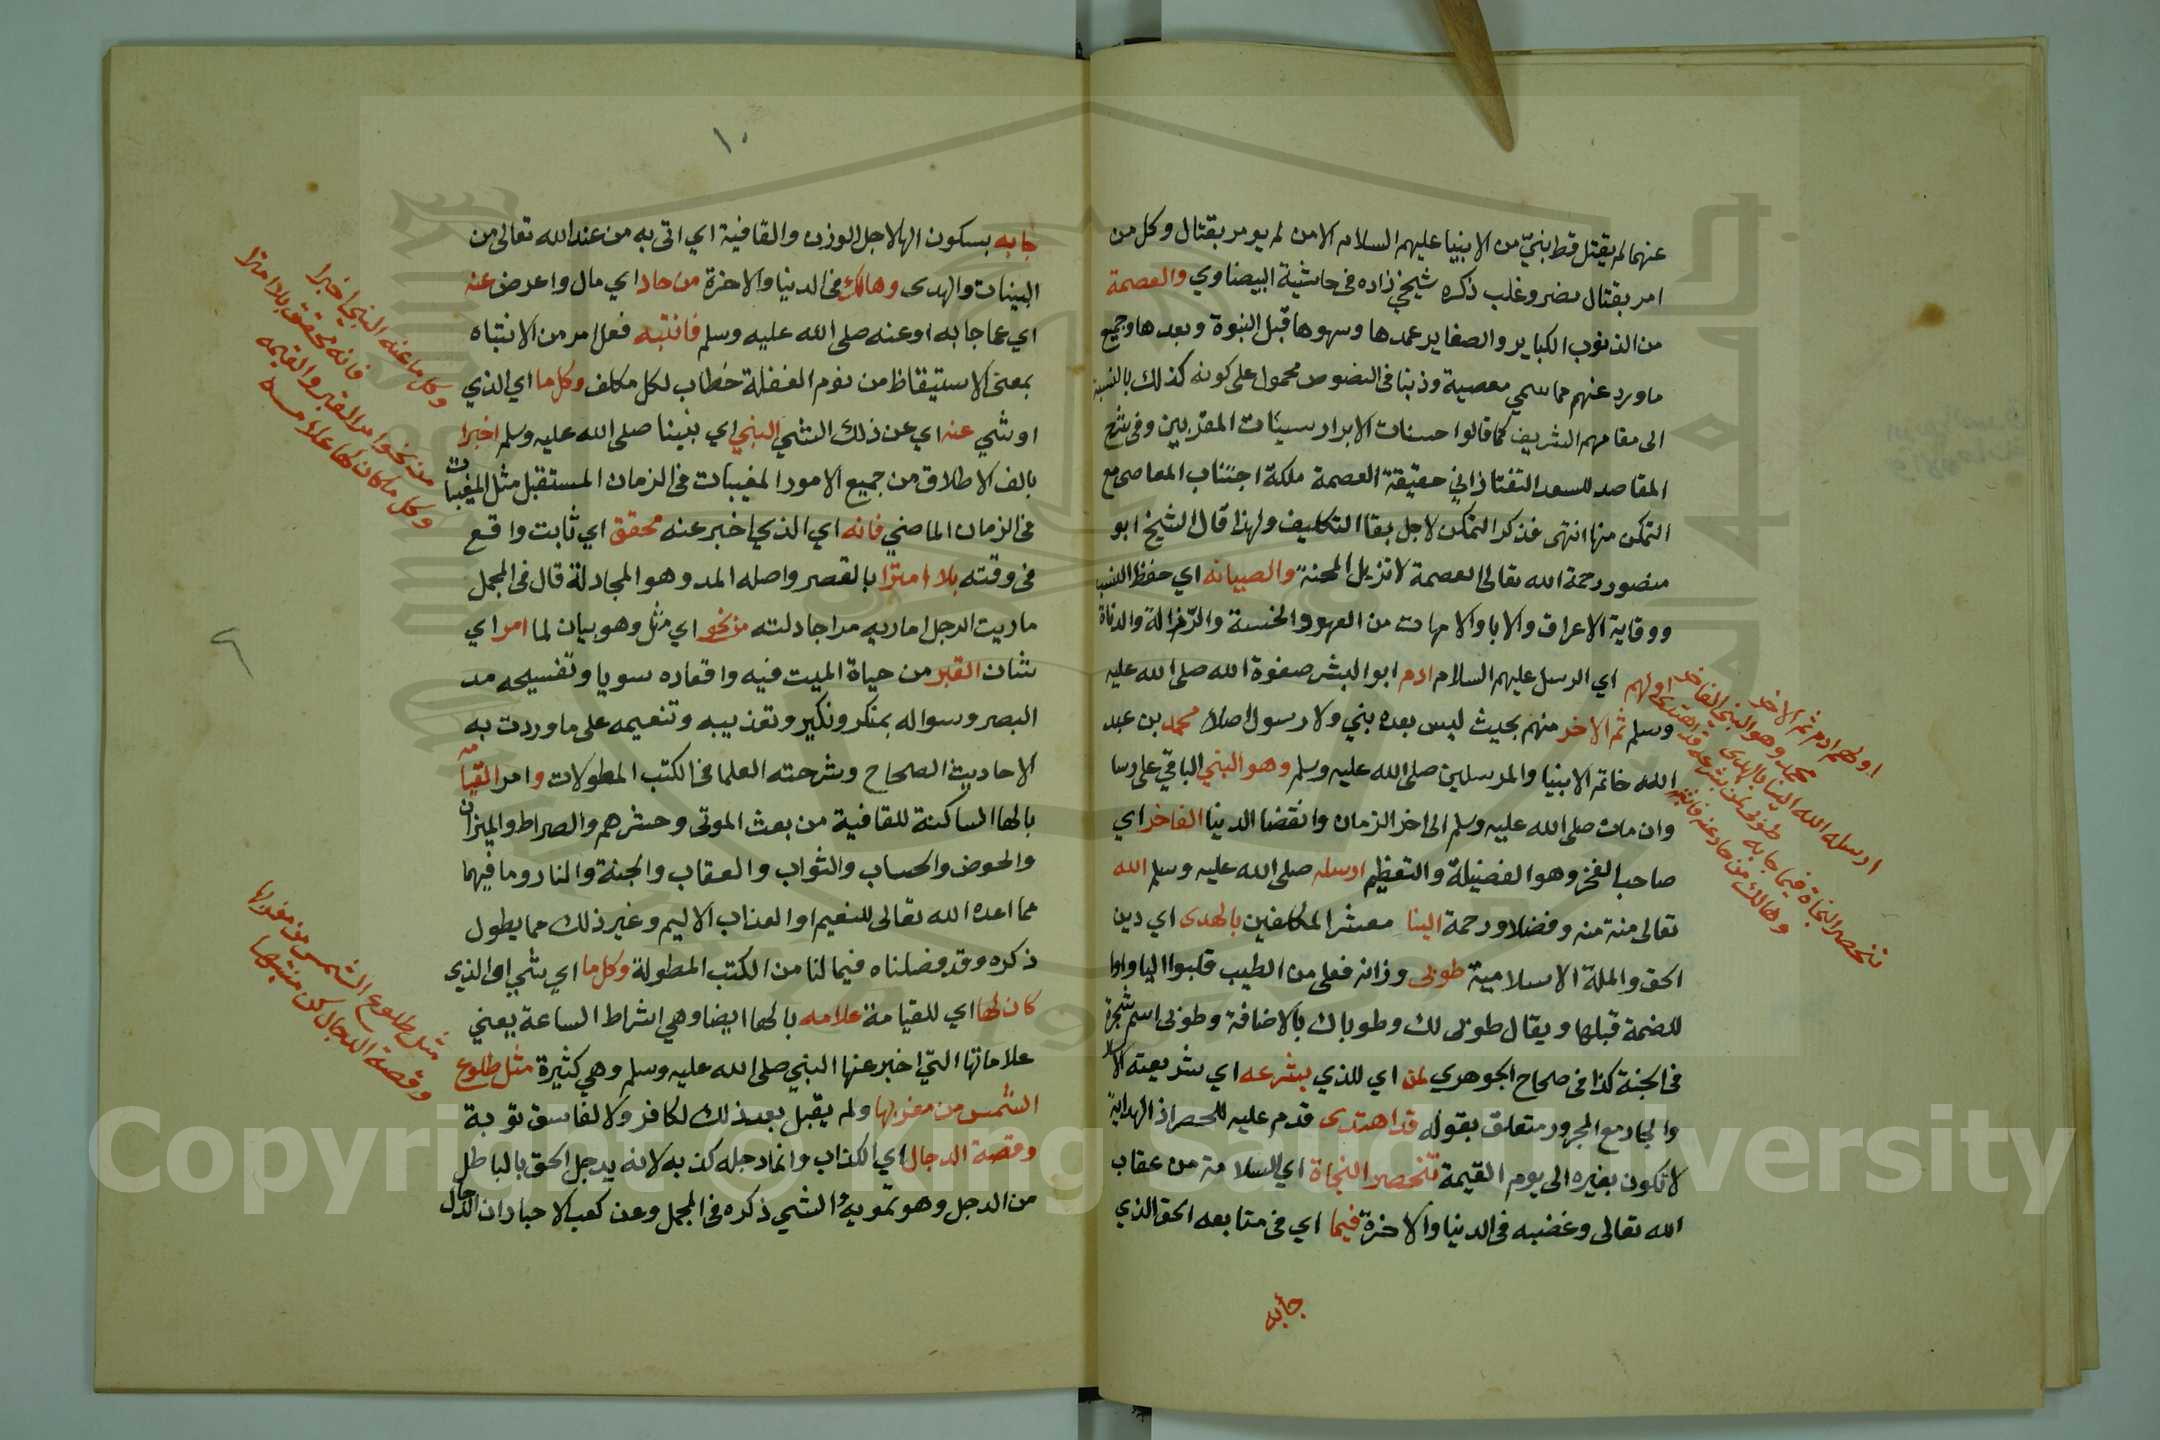 عنهما لم يقتل قط بنيّ من الابنيا عليهم السلام الا من لم يومر بقتال وكل من
امر بقتال نصر وغلب ذكره شيخي زاده فى حاشية البيضاوي والعصمة
من الذنوب الكباير والصغاير عمدها وسهوها قبل النبوة وبعدها وجميع
ما ورد عنهم مما سمي معصية وذنبا فى النصوص محمول على كونه كذلك بالنسبة
الى مقامهم الشريف كما قالوا حسنات الابرار سيئات المقربين وفى شرح
المقاصد للسعد التفتازاني حقيقة العصمة ملكة اجتناب المعاصي مع
التمكن منها انتهى فذكر التمكن لاجل بقا التكليف ولهذا قال الشيخ ابو
منصور رحمة الله تعالى العصمة لا تزيل المحنة والصيانه اي حفظ النسب
ووقاية الاعراق والابا والامهات من العهور والخسة والرّذالة والدناة
اولهم اي الرسل عليهم السلام ادم ابو البشر صفوة الله صلى الله عليه
وسلم ثم الاخر منهم بحيث ليس بعده بني ولا رسول اصلا محمد بن عبد
الله خاتم الابنيا والمرسلين صلى الله عليه وسلم وهو النبي الباقي على رسا
وان مات صلى الله عليه وسلم الى اخر الزمان وانقضا الدنيا الفاخر اي
صاحب الفخر وهو الفضيلة والتعظيم ارسله صلى الله عليه وسلم الله
تعالى منة منه وفضلا ورحمة الينا معشر المكلفين بالهدى اي دين
الحق والملة الاسلامية طوبى وزانه فعلى من الطيب قلبوا اليا واوا
للضمة قبلها ويقال طوبى لك وطوباك بالاضافة وطوبى اسم شجرة
فى الجنة كذا فى صحاح الجوهري لمن اي للذي بشرعه اي شريعته
والجار مع المجرور متعلق بقوله قد اهتدى قدم عليه للحصر اذ الهداية
لا تكون بغيره الى يوم القيمة تنحصر النجاة اي السلامة من عقاب
الله تعالى وغضبه فى الدنيا والاخرة فيما اي فى متابعه الحق الذي
جا به
اولهم ادم ثم الاخر
محمد وهو النبي الفاخر
ارسله الله الينا بالهدى
طوبى لمن بشرعه قد اهتدى
تنحصر النجاة فيما جا به
وهالك من حاد عنه فانتبه
١٠
جا به بسكون الها لاجل الوزن والقافية اي اتى به من عند الله تعالى من
البينات والهدى وهالك فى الدنيا والاخرة من حاد اي مال واعرض عنه
اي عما جا به او عنه صلى الله عليه وسلم فانتبه فعل امر من الانتباه
بمعنى الاستيقاظ من نوم الغفلة خطاب لكل مكلف وكل ما اي الذي
او شي عنه اي عن ذلك الشي النبي اي نبينا صلى الله عليه وسلم اخبرا
بالف الاطلاق من جميع الامور المغيبات فى الزمان المستقبل مثل المغيبات
فى الزمان الماضي فانه اي الذي اخبر عنه محقق اي ثابت واقع
فى وقته بلا امترا بالقصر واصله المد وهو المجادلة قال فى المجمل
ماريت الرجل اماريه مرا جادلته من نحو اي مثل وهو بيان لما امر اي
شان القبر من حياة الميت فيه واقعاده سويا وتفسيحه مد
البصر وسواله بمنكر ونكير وتعذيبه وتنعيمه على ما وردت به
الاحاديث الصحاح وشرحته العلما فى الكتب المطولات وامر القيامه
بالها الساكنة للقافية من بعث الموتى وحشرهم والصراط والميزان
والحوض والحساب والثواب والعقاب والجنة والنار وما فيهما
مما اعده الله تعالى للنعيم او العذاب الاليم وغير ذلك مما يطول
ذكره وقد فصلناه فيما لنا من الكتب المطولة وكل ما اي شي او الذي
كان لها اي للقيامة علامه بالها ايضا وهي اشراط الساعة يعني
علاماتها التي اخبر عنها النبي صلى الله عليه وسلم وهي كثيرة مثل طلوع
الشمس من مغربها ولم يقبل بعد ذلك لكافر ولا لفاسق توبة
وقصة الدجال اي الكذاب وانما دجله كذبه لانه يدجل الحق بالباطل
من الدجل وهو تمويه الشي ذكره فى المجمل وعن كعب الاحبار ان الدجال
وكل ما عنه النبي اخبرا
فانه محقق بلا امترا
من نحو امر القبر والقيمه
وكل ما كان لها علامه
مثل طلوع الشمس من مغربها
وقصة الدجال كن منتبها
Copyright © King Saud University